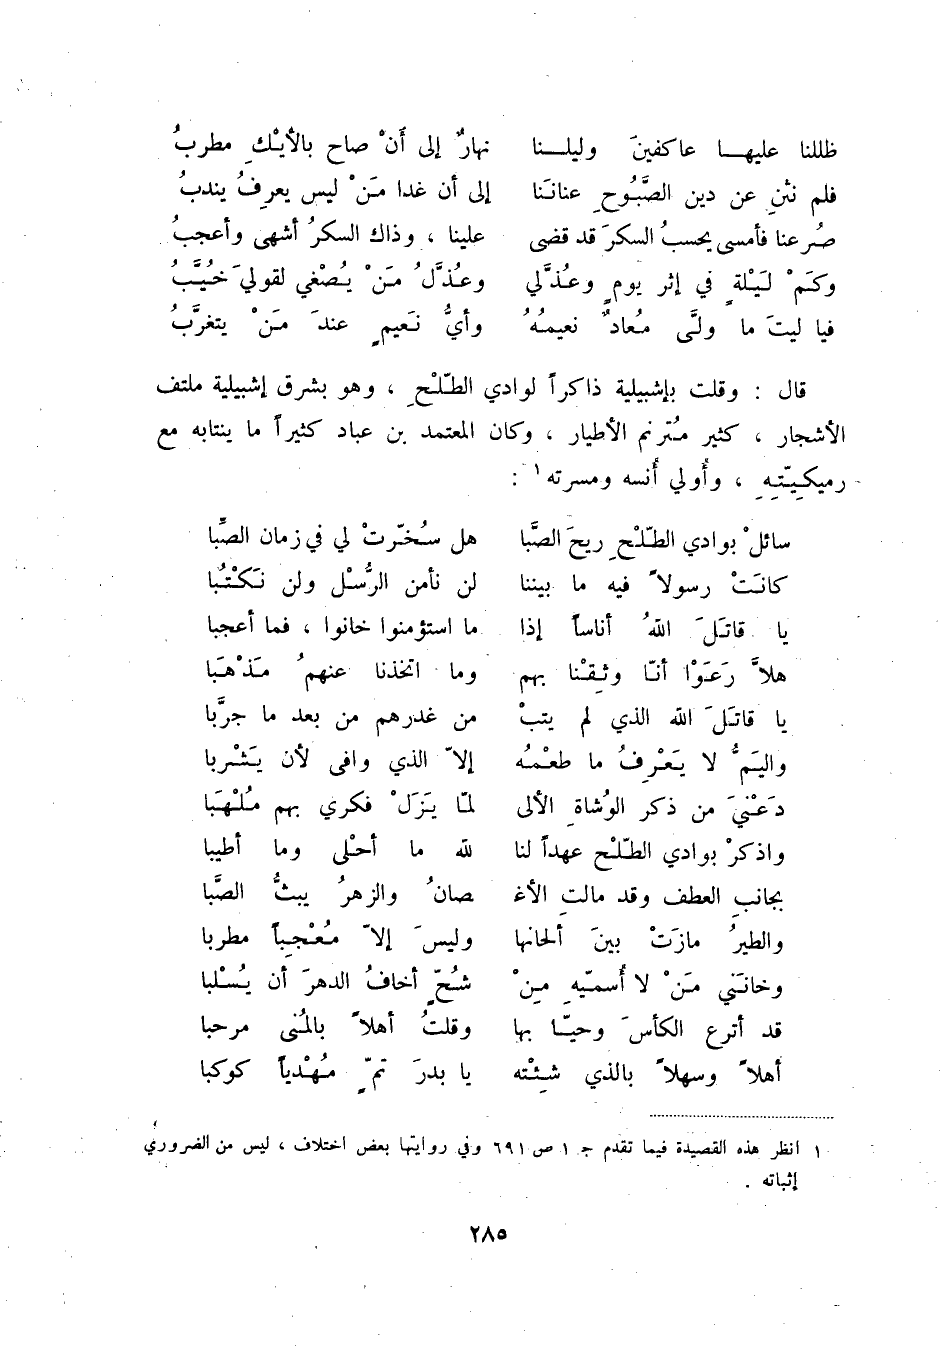 ظللنا عليهـــا عاكفينَ وليلــــنا نهارٌ إلى أَنْ صاح بالأَيْكِ مطربُ
فلم نثنِ عن دين الصَّبُوحِ عنانَنا إلى أن غدا مَنْ ليس يعرِفُ يندبُ
صُرعنا فأمسى يحسبُ السكرَ قد قضى علينا ، وذاك السكرُ أشهى وأعجبُ
وكَمْ لَيْلَةٍ في إثر يومٍ وعُذَّلي وعُذَّلُ مَنْ يُصْغي لقوليَ خُيَّبُ
فيا ليتَ ما ولَّى مُعادٌ نعيمُهُ وأيُّ نَعيمٍ عندَ مَنْ يتغرَّبُ
قال : وقلت بإشبيلية ذاكراً لوادي الطّلْحِ ، وهو بشرق إشبيلية ملتف
الأشجار ، كثير مُترنم الأطيار ، وكان المعتمد بن عباد كثيراً ما ينتابه مع
رميكِيّتِهِ ، وأُولي أُنسه ومسرته ١ :
سائلْ بوادي الطّلْحِ ريحَ الصَّبا هل سُخّرتْ لي في زمان الصِّبا
كانَتْ رسولاً فيه ما بيننا لن نأمن الرُّسْل ولن نَكْتُبا
يا قاتَلَ اللهُ أناساً إذا ما استؤمنوا خانوا ، فما أعجبا
هلاَّ رَعَوْا أنّا وثِقْنا بهم وما اتخذنا عنهمُ مَذْهَبا
يا قاتَلَ الله الذي لم يتبْ من غدرهم من بعد ما جرَّبا
واليَمُّ لا يَعْرِفُ ما طعْمُه إلاّ الذي وافى لأن يَشْربا
دَعْنيَ من ذكر الوُشاةِ الألى لمّا يَزَلْ فكري بهم مُلْهَبا
واذكرْ بوادي الطّلْح عهداً لنا لله ما أحْلى وما أطيبا
بجانبِ العطف وقد مالتِ الأغـ ـصانُ والزهرُ يبثُّ الصَّبا
والطيرُ مازَتْ بينَ ألحانها وليسَ إلاّ مُعْجِباً مطربا
وخانَني مَنْ لا أُسمّيهِ مِنْ شُحٍّ أخافُ الدهرَ أن يُسْلبا
قد أترع الكأسَ وحيّا بها وقلتُ أهلاً بالمُنى مرحبا
أهلاً وسهلاً بالذي شِئْته يا بدرَ تمٍّ مُهْدِياً كوكبا
١ انظر هذه القصيدة فيما تقدم ج ١ ص ٦٩١ وفي روايتها بعض اختلاف ، ليس من الضروري
إثباته .
٢٨٥